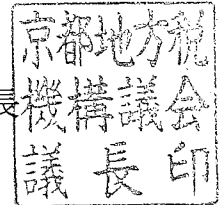 長
京都地方税
機構議会
議長印